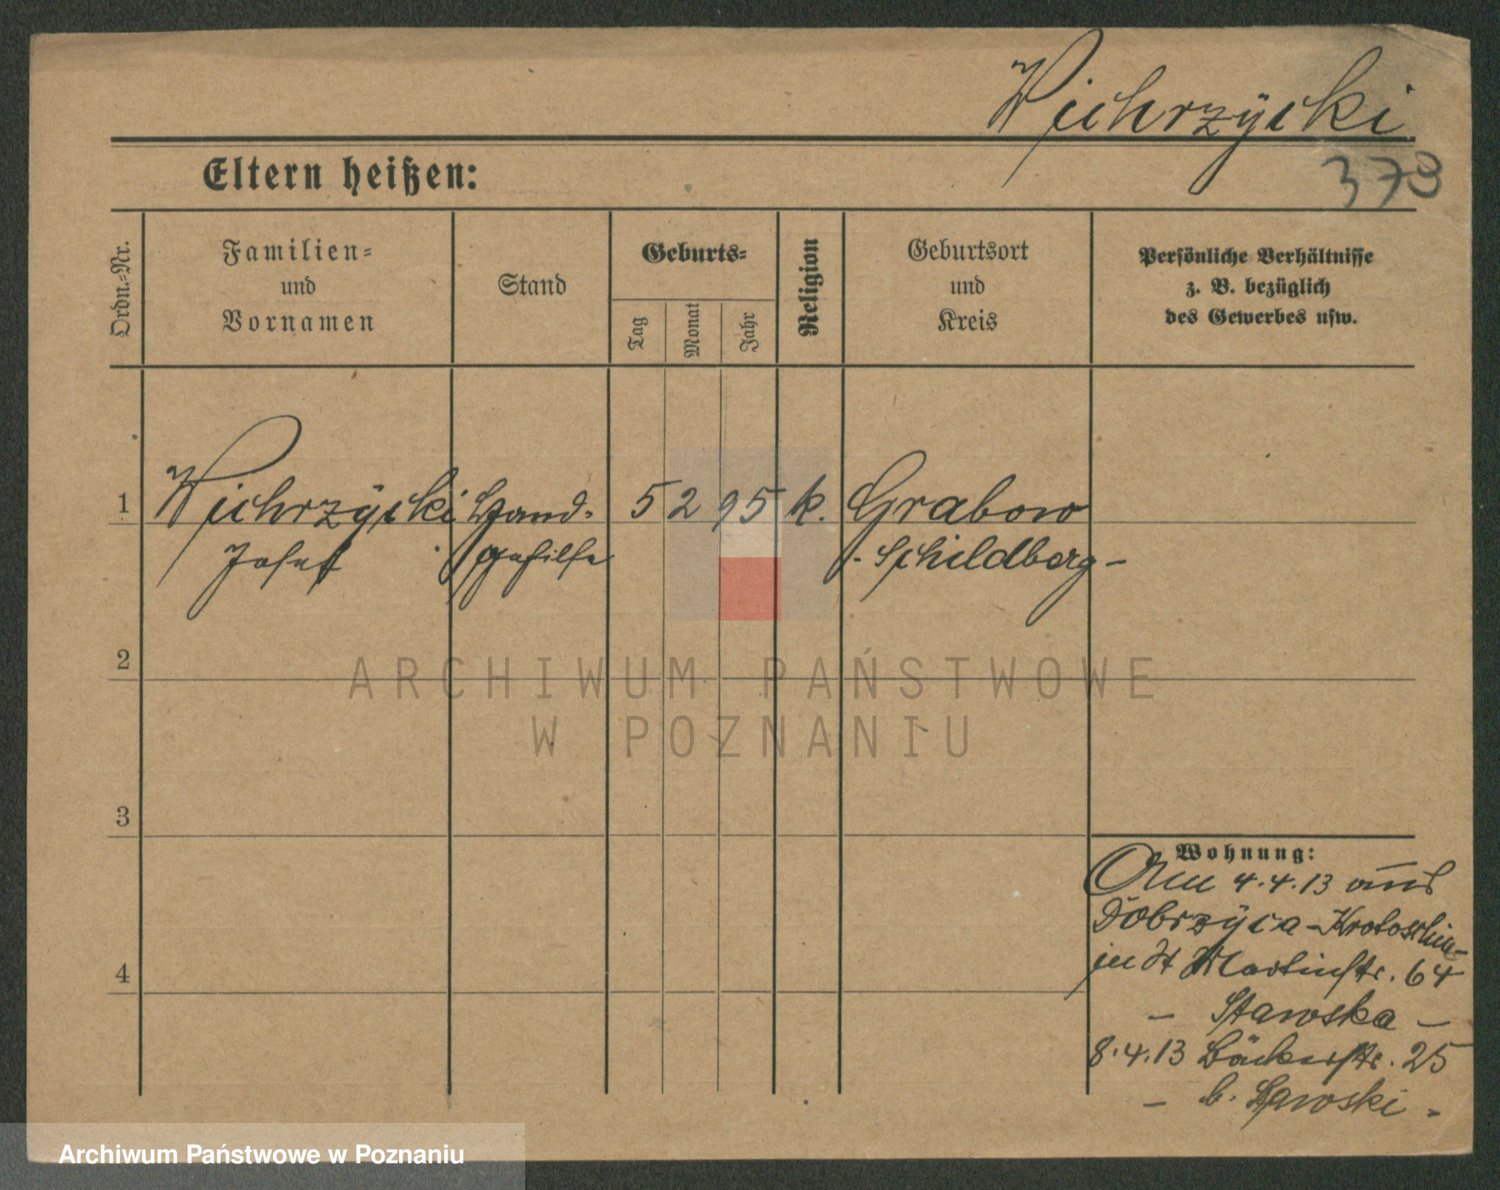 Wichrzÿcki
373
Eltern heißen:
Ordn.-Nr.
Familien-
und
Vornamen
Stand
Geburts-
Tag
Monat
Jahr
Religion
Geburtsort
und
Kreis
Persönliche Verhältnisse
z. B. bezüglich
des Gewerbes usw.
1
Wichrzÿcki Hand- 5 2 95 k. Grabow
Josef gehilfe - Schildberg -
2
ARCHIWUM PAŃSTWOWE
W POZNANIU
3
Wohnung:
Am 4.4.13 aus
Dobrzÿca - Krotoschin -
in St Martinstr. 64
4
- Stawska -
8.4.13 Bäckerstr. 25
- b. Hawski -
Archiwum Państwowe w Poznaniu